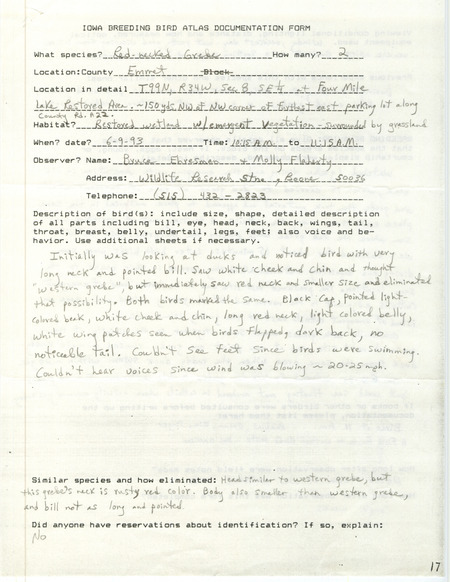 IOWA BREEDING BIRD ATLAS DOCUMENTATION FORM
What species? Red-necked Grebe How many? 2
Location: County Emmet Block
Location in detail T99N, R34W, Sec 8, SE¼ at Four Mile
Lake Restored Area. ~150yds. NW of NW corner of furthest east parking lot along
County Rd. A22.
Habitat? Restored wetland w/emergent vegetation - surrounded by grassland
When? date? 6-9-93 Time: 10:15 A.M. to 11:15 A.M.
Observer? Name: Bruce Ehresman & Molly Flaherty
Address: Wildlife Research Stne, Boone 50036
Telephone: (515) 432-2823
Description of bird(s): include size, shape, detailed description
of all parts including bill, eye, head, neck, back, wings, tail,
throat, breast, belly, undertail, legs, feet; also voice and be-
havior. Use additional sheets if necessary.
Initially was looking at ducks and noticed bird with very
long neck and pointed bill. Saw white cheek and chin and thought
"western grebe", but immediately saw red neck and smaller size and eliminated
that possibility. Both birds marked the same. Black cap, pointed light-
colored beak, white cheek and chin, long red neck, light colored belly,
white wing patches seen when birds flapped, dark back, no
noticeable tail. Couldn't see feet since birds were swimming.
Couldn't hear voices since wind was blowing ~ 20-25 mph.
Similar species and how eliminated: Head similar to western grebe, but
this grebe's neck is rusty red color. Body also smaller than western grebe,
and bill not as long and pointed.
Did anyone have reservations about identification? If so, explain:
No
17